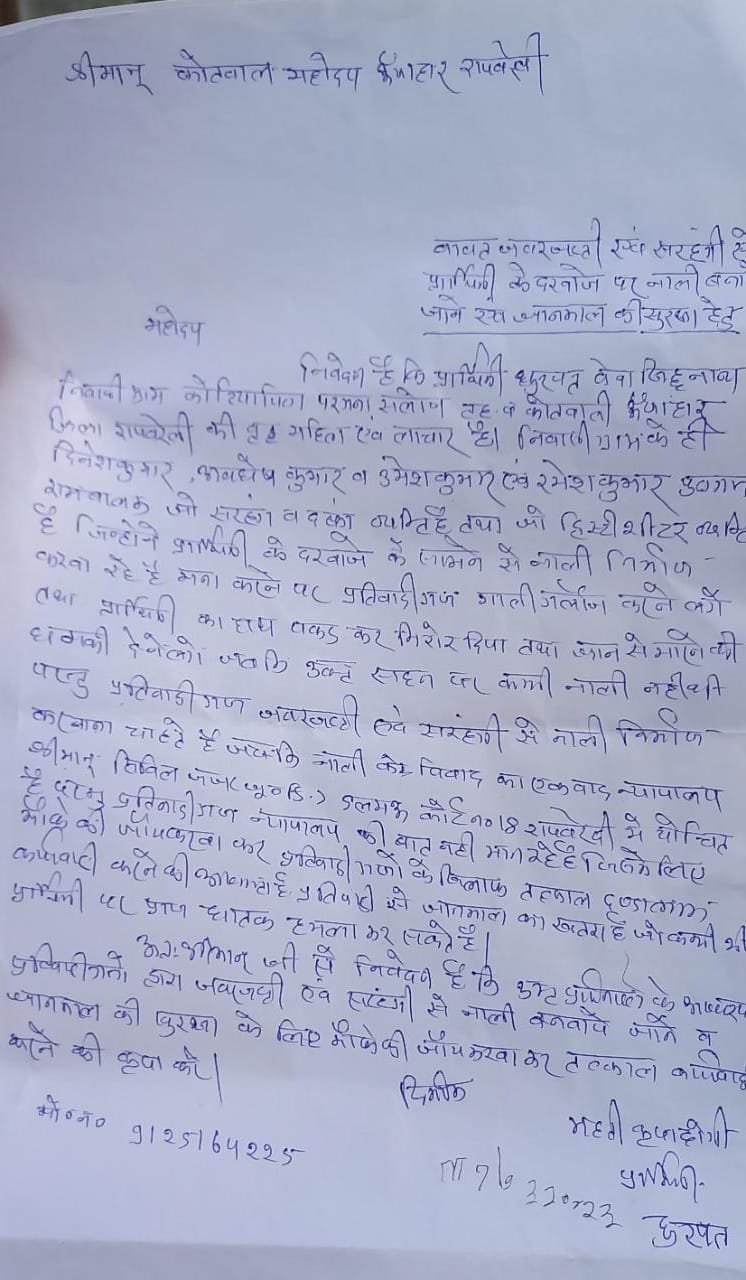 श्रीमान् कोतवाल महोदय ऊँचाहार रायबरेली
बावत जबरजस्ती एवं सरहंगी से
प्रार्थिनी के दरवाजे पर नाली बना
जाने एवं जानमाल की सुरक्षा हेतु
महोदय
निवेदन है कि प्रार्थिनी धुरपत बेवा
निवासी ग्राम परगना सलोन तह. व कोतवाली ऊँचाहार
जिला रायबरेली की वृद्ध महिला एवं लाचार है। निवासी ग्राम के ही
दिनेशकुमार, अवधेष कुमार व उमेशकुमार एवं रमेशकुमार पुत्रगण
रामबालक जो सरहंग व दबंग व्यक्ति है तथा जो हिस्ट्रीशीटर व्यक्ति
है जिन्होने प्रार्थिनी के दरवाजे के सामने से नाली निर्माण
करवा रहे है मना करने पर प्रतिवादीगण गाली गलौज करने लगे
तथा प्रार्थिनी का हाथ पकड कर मिरोर दिया तथा जान से मारने की
धमकी देने लगे जबकि उक्त सहन पर कभी नाली नही थी
परन्तु प्रतिवादीगण जबरजस्ती एवं सरहंगी से नाली निर्माण
करवाना चाहते है जबकि नाली के विवाद का एक वाद न्यायालय
श्रीमान् सिविल जज (जू० डि.) डलमऊ कोर्ट न० 18 रायबरेली मे योजित
है परन्तु प्रतिवादीगण न्यायालय की बात नही मान रहे है जिसके लिए
मौके की जाँच करवा कर प्रतिवादीगणों के खिलाफ तत्काल दण्डात्मक
कार्यवाही करने की आवश्यकता है. प्रतिवादी से जानमाल का खतरा है जो कभी भी
प्रार्थिनी पर प्राण घातक हमला कर सकते है।
अतः श्रीमान् जी से निवेदन है कि उक्त के
प्रतिवादीगणो द्वारा जबरजस्ती एवं सरहंगी से नाली बनवाये जाने व
जानमाल की सुरक्षा के लिए मौके की जाँच करवा कर तत्काल कार्यवाही
करने की कृपा करे।
दिनाँक
महती कृपा होगी
मो० न० 9125164225
प्रार्थिनी
धुरपत